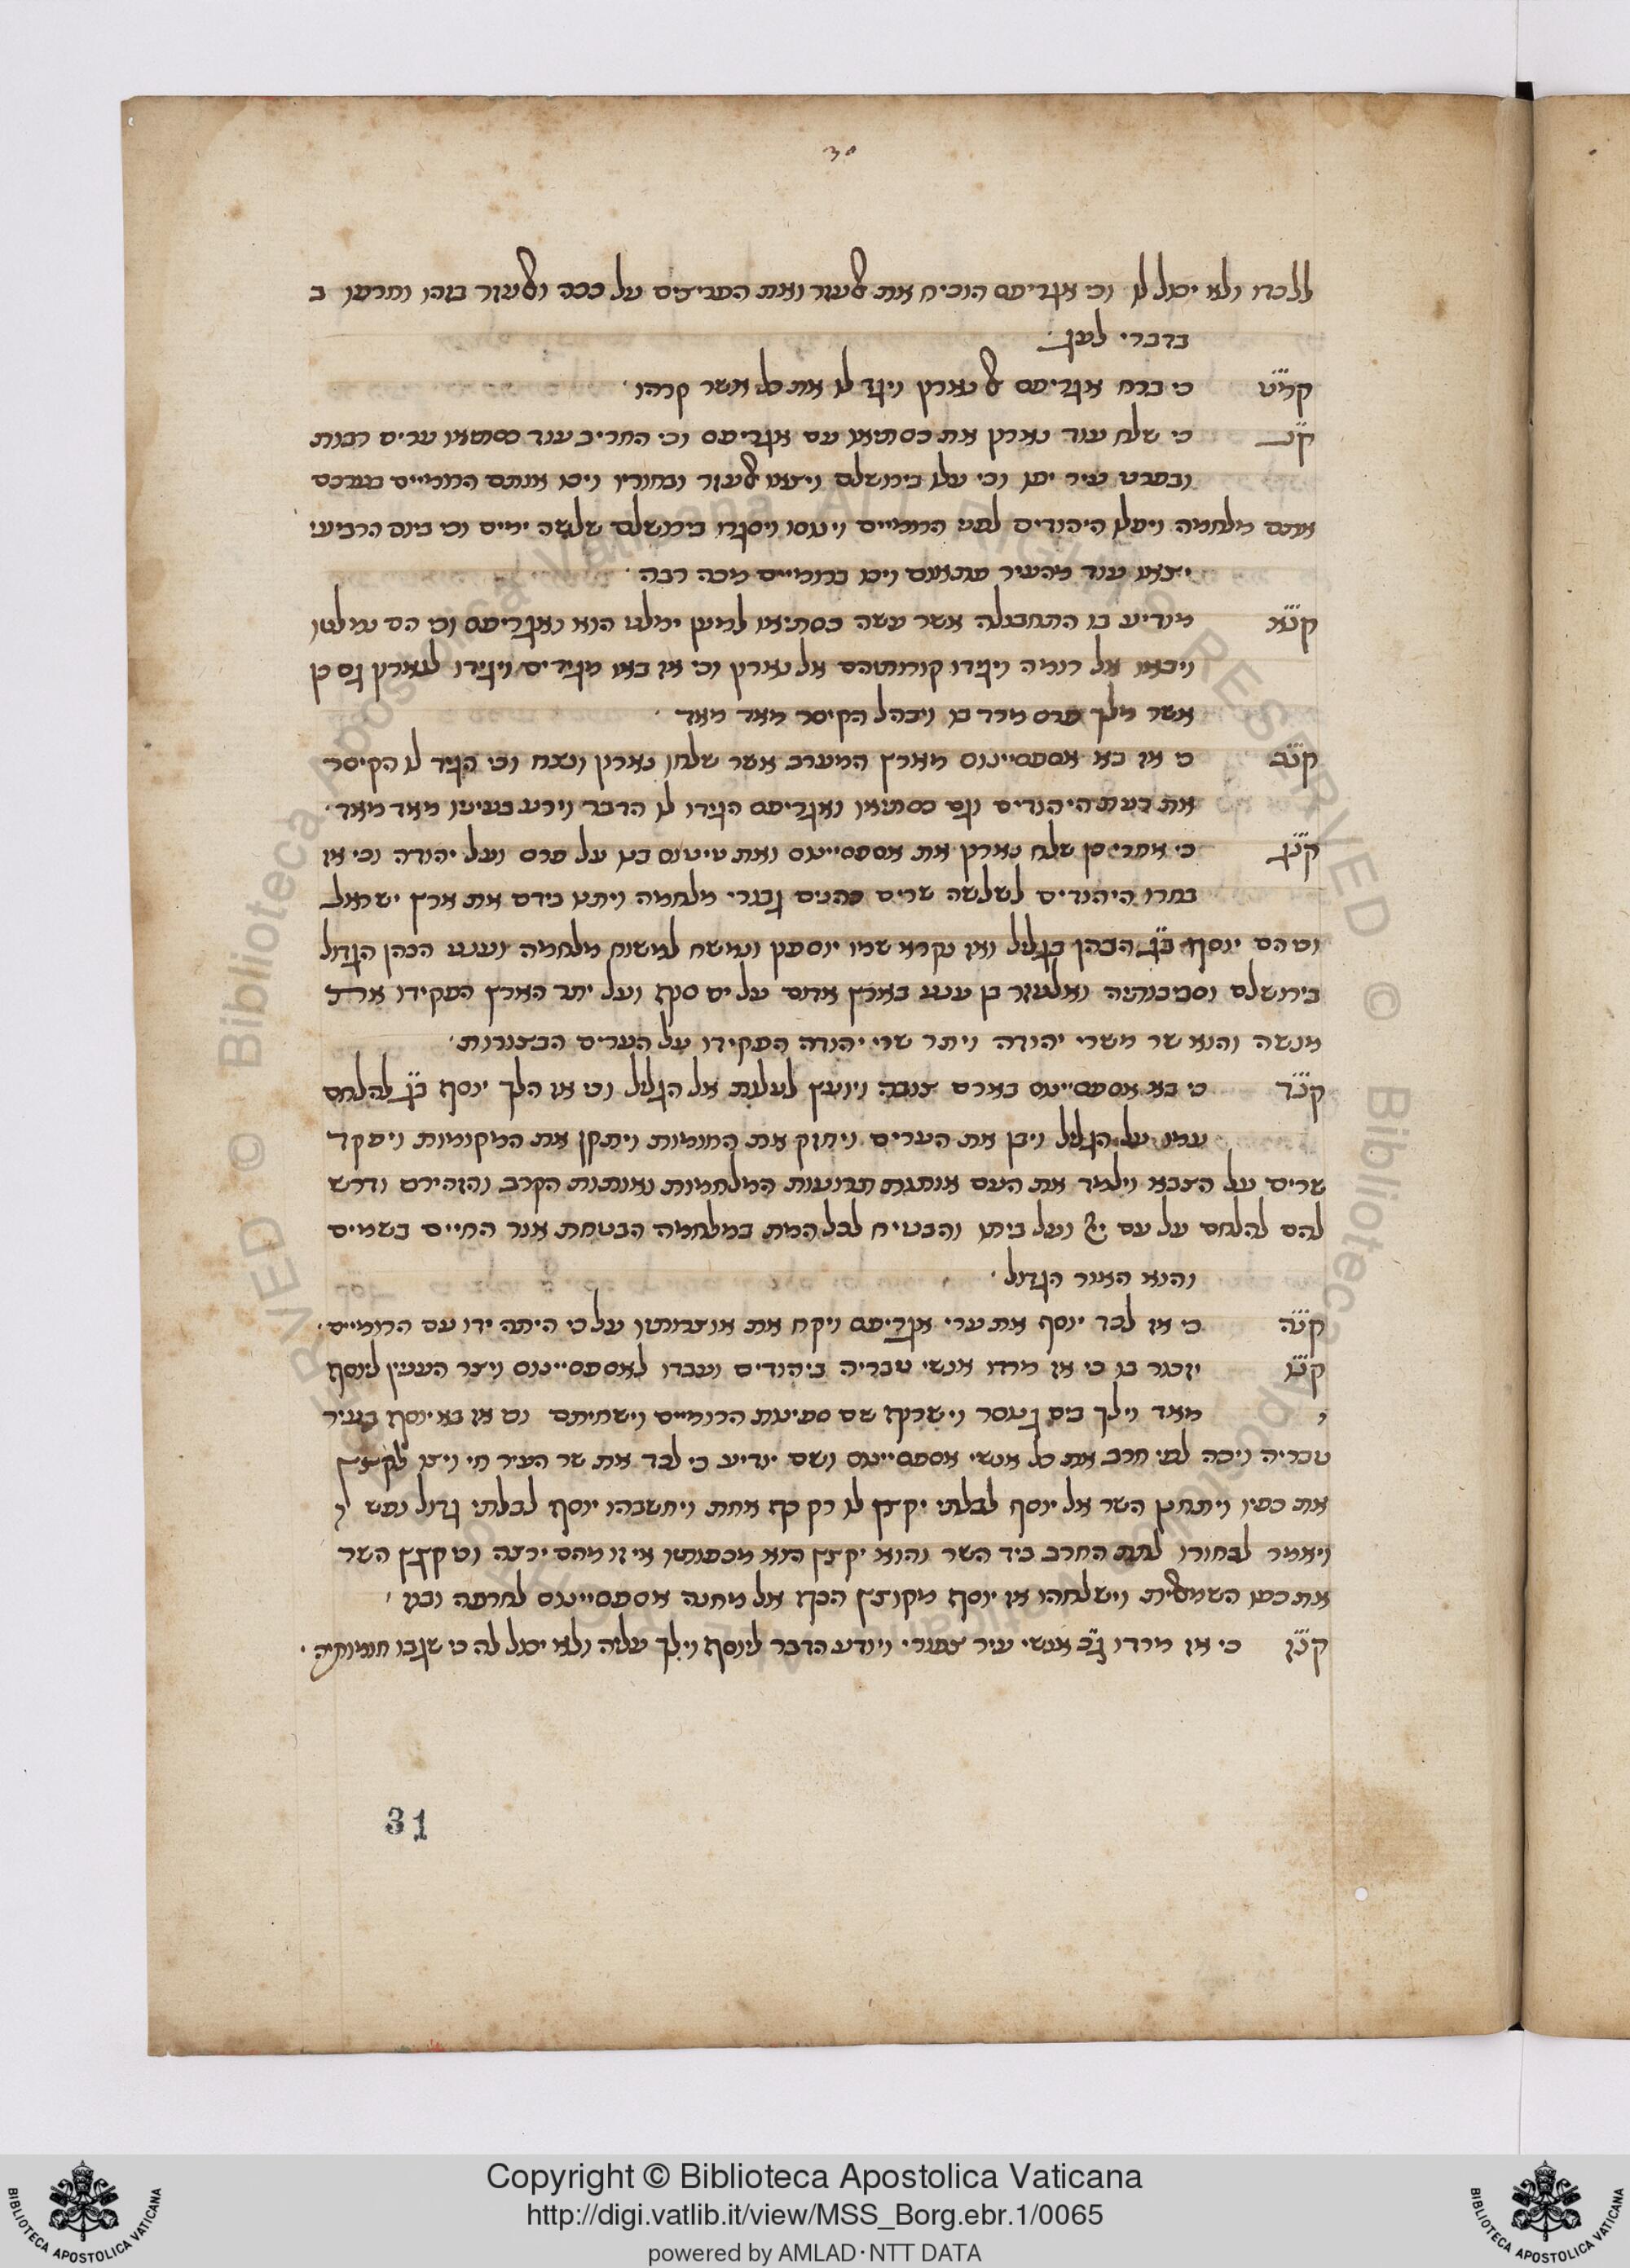 30
ללכדו ולא יכול לו וכי אגריפס הוכיח את אלעזר ואת הפריצים על ככה ואלעזר בזהו וחרפו ב
בדברי לעג
קמ״ט כי ברח אגריפס אל נארון ויגד לו את כל אשר קרהו
ק״נ כי שלח עוד נארון את כסתיאו עם אגריפס וכי החריב עוד כסתיאו ערים רבות
ובפרט עיר יפו וכי עלו בירושלם ויצאו אלעזר ובחוריו ויכו אותם הרומיים בערכם
אתם מלחמה ויפלו היהודים לפני הרומיים וינוסו ויסגרו בירושלם שלשה ימים וכי ביום הרביעי
יצאו עוד מהעיר פתאום ויכו ברומיים מכה רבה
קנ״א מודיע בו התחבולה אשר עשה כסתיאו למען ימלט הוא ואגריפס וכי הם נמלטו
ויבואו אל רומה ויגידו קורותיהם אל נארון וכי אז באו מגידים ויגידו לנארון גם כן
אשר מלך פרס מרד בו ויבהל הקיסר מאד מאד
קנ״ב כי אז בא אספסיינוס מארץ המערב אשר שלחו נארון ונצח וכי הגיד לו הקיסר
את דעת היהודים וגם כסתיאו ואגריפס הגידו לו הדבר וירע בעיניו מאד מאד
קנ״ג כי אחרי כן שלח נארון את אספסיינוס ואת טיטוס בנו על פרס ועל יהודה וכי אז
בחרו היהודים לשלשה שרים כהנים גבורי מלחמה ויתנו בידם את ארץ ישראל
וכי הם יוסף ב״ג הכהן בגליל ואז נקרא שמו יוסיפון ונמשח למשוח מלחמה וענני הכהן הגדול
בירושלם וסביבותיה ואלעזר בן ענני בארץ אדום על ים סוף ועל יתר הארץ הפקידו את
מנשה והוא שר משרי יהודה ויתר שרי יהודה הפקידו על הערים הבצורות
קנ״ד כי בא אספסיינוס בארם צובה ויועץ לעלות אל הגליל וכי אז הלך יוסף ב״ג להלחם
עמו על הגליל ויבן את הערים ויחזק את החומות ויתקן את המקומות ויפקד
שרים על הצבא וילמד את העם אותות תרועות המלחמות ואותות הקרב והזהירם ודרש
להם להלחם על עם יי׳ ועל ביתו והבטיח לכל המת במלחמה הבטחת אור החיים בשמים
והוא האור הגדול
קנ״ה כי אז לכד יוסף את ערי אגריפס ויקח את אוצרותיו על כי היתה ידו עם הרומיים
קנ״ו יזכור בו כי אז מרדו אנשי טבריה ביהודים ועבדו לאספסיינוס ויצר הענין ליוסף
מאד וילך בים וישרוף שם ספינות הרומיים וישחיתם וכי אז בא יוסף בעיר
טבריה ויכה לפי חרב את כל אנשי אספסיינוס ושם יודיע כי לכד את שר העיר חי ויצו לקצוץ
את כפיו ויתחנן השר אל יוסף לבלתי יקצץ לו רק כף אחת ויחשבהו יוסף לבלתי גדול נפש
ויאמר לבחורו לתת החרב ביד השר והוא יקצץ הוא מכפותיו איזו מהם ירצה וכי קצץ השר
את כפו השמאלית וישלחהו אז יוסף מקוצץ הכף אל מחנה אספסיינוס לחרפה ובוז
קנ״ז כי אז מרדו ג״כ אנשי עיר צפורי ויודע הדבר ליוסף וילך עליה ולא יכול לה כי שגבו חומותיה
31
Copyright © Biblioteca Apostolica Vaticana
http://digi.vatlib.it/view/MSS_Borg.ebr.1/0065
powered by AMLAD·NTT DATA
BIBLIOTECA APOSTOLICA VATICANA
BIBLIOTECA APOSTOLICA VATICANA